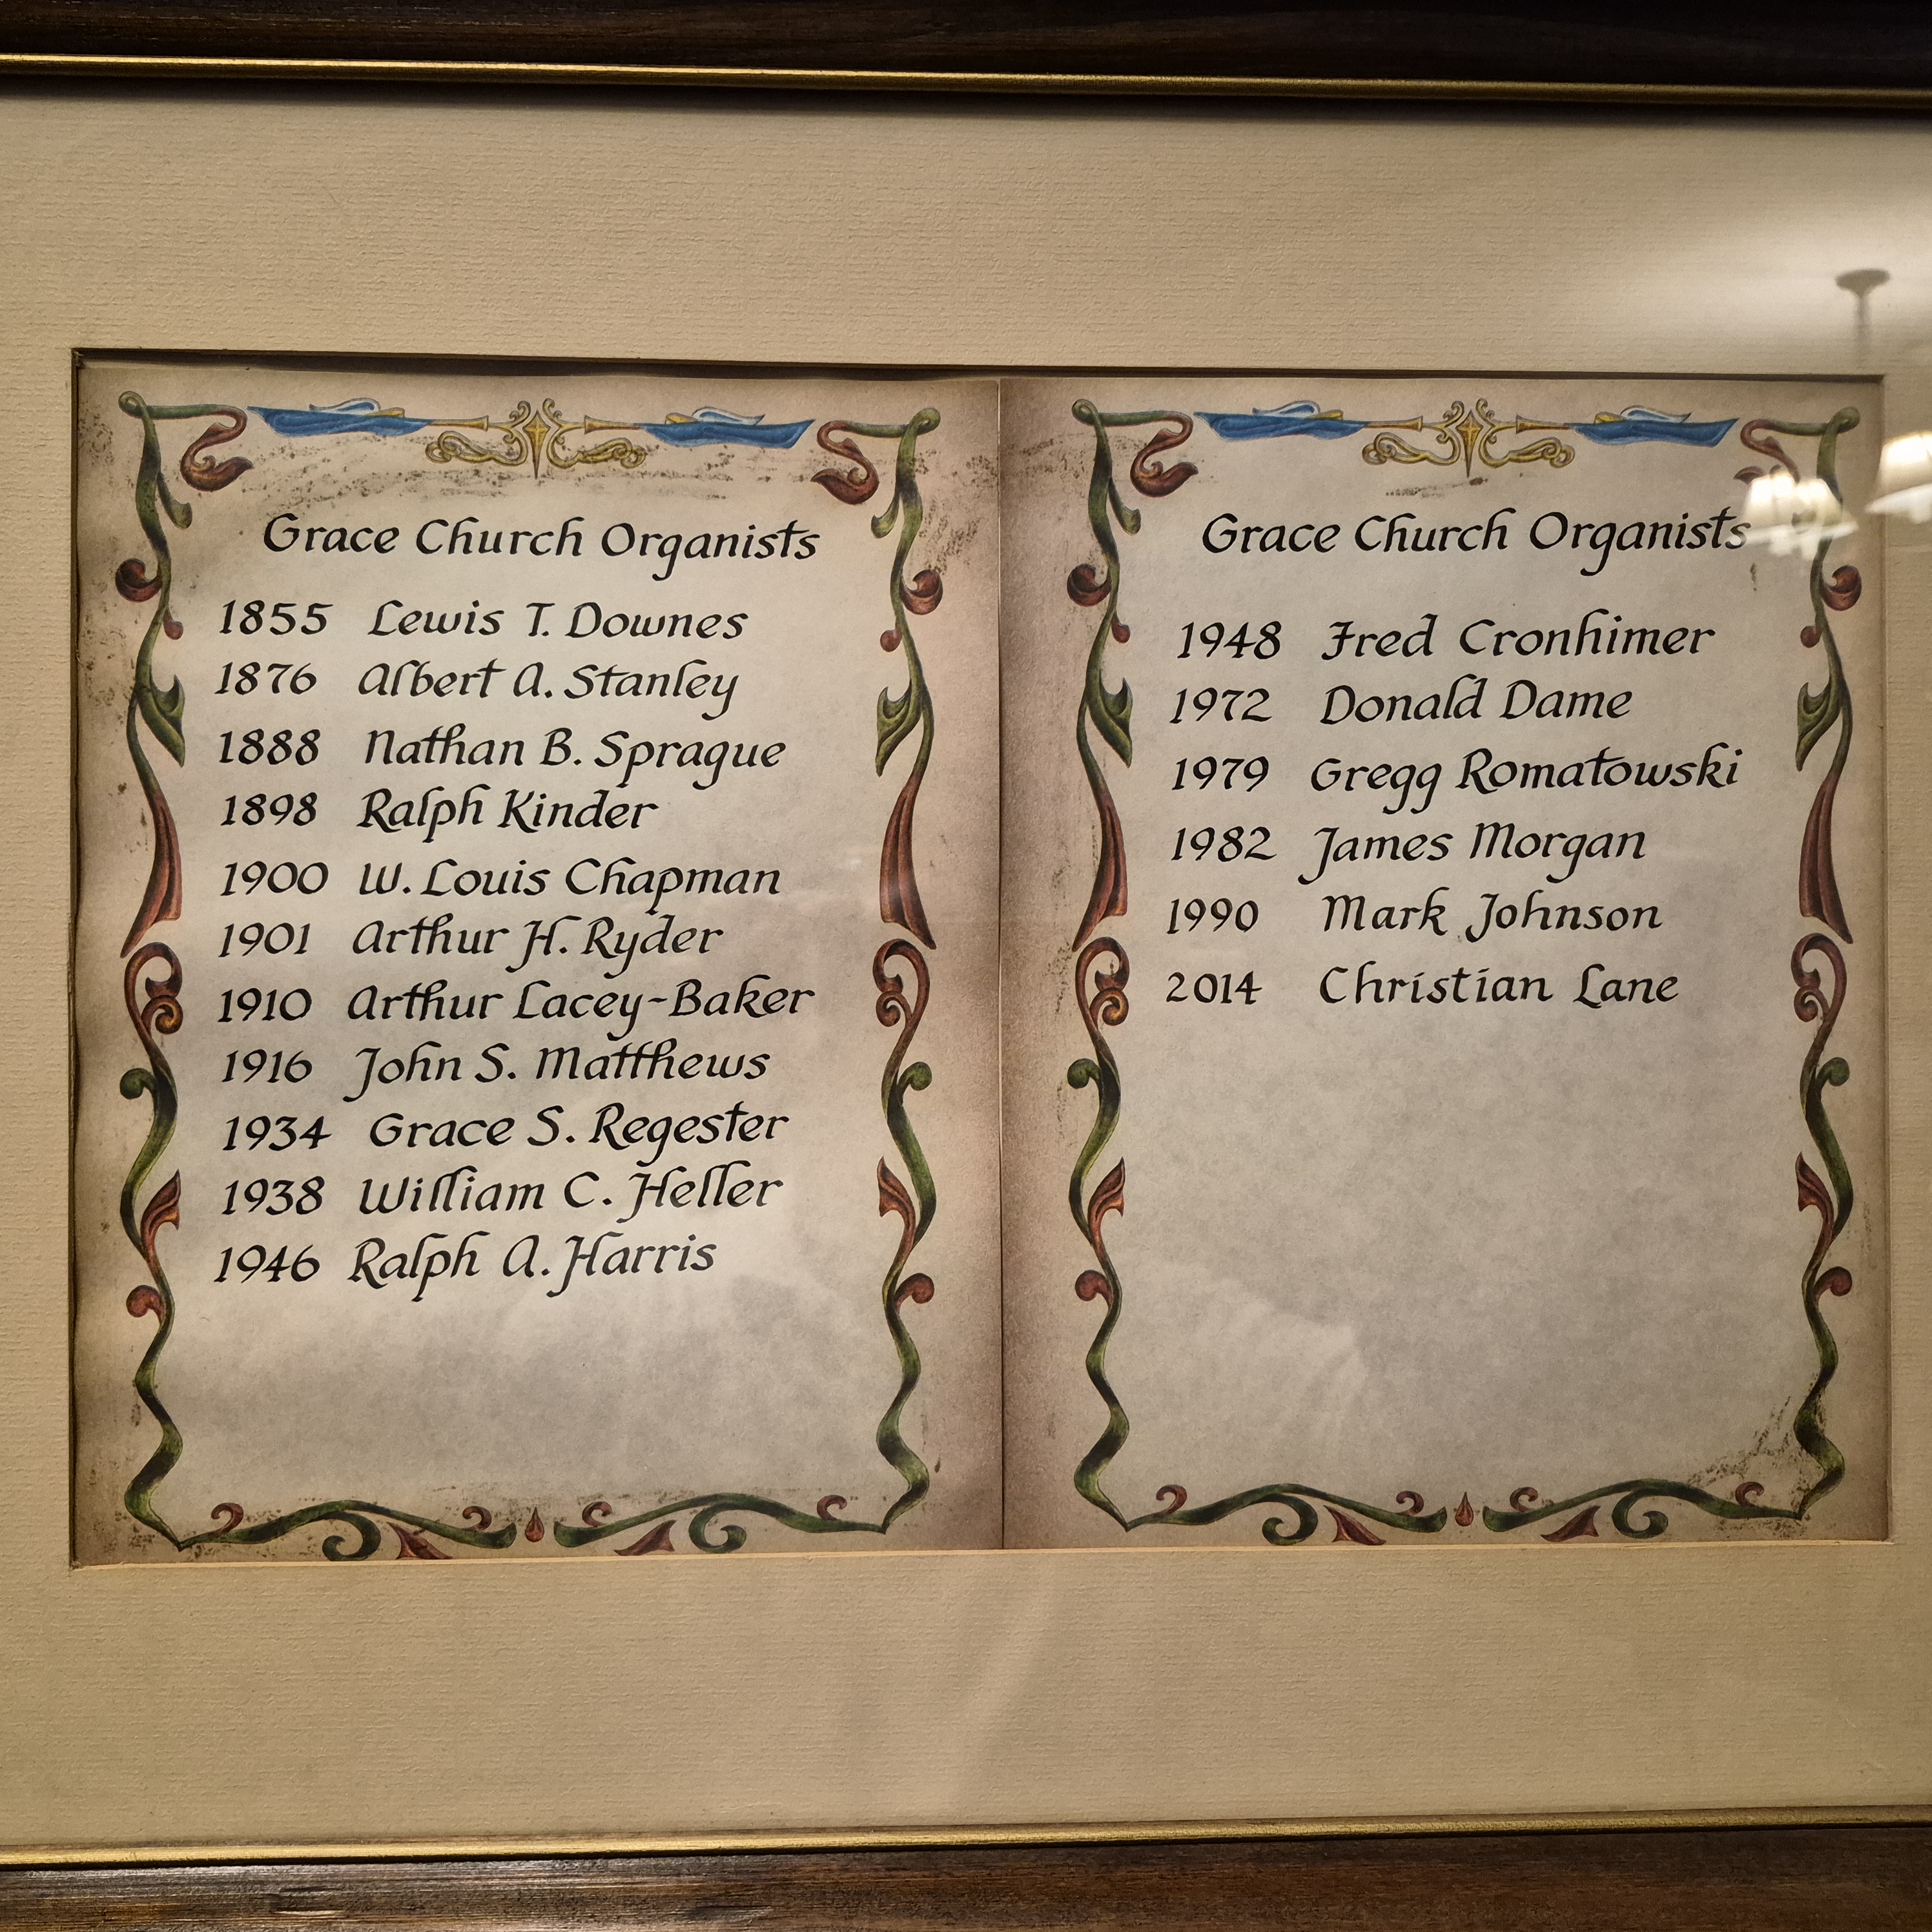 Grace Church Organists
1855 Lewis T. Downes
1876 Albert A. Stanley
1888 Nathan B. Sprague
1898 Ralph Kinder
1900 W. Louis Chapman
1901 Arthur H. Ryder
1910 Arthur Lacey-Baker
1916 John S. Matthews
1934 Grace S. Regester
1938 William C. Heller
1946 Ralph A. Harris
Grace Church Organists
1948 Fred Cronhimer
1972 Donald Dame
1979 Gregg Romatowski
1982 James Morgan
1990 Mark Johnson
2014 Christian Lane